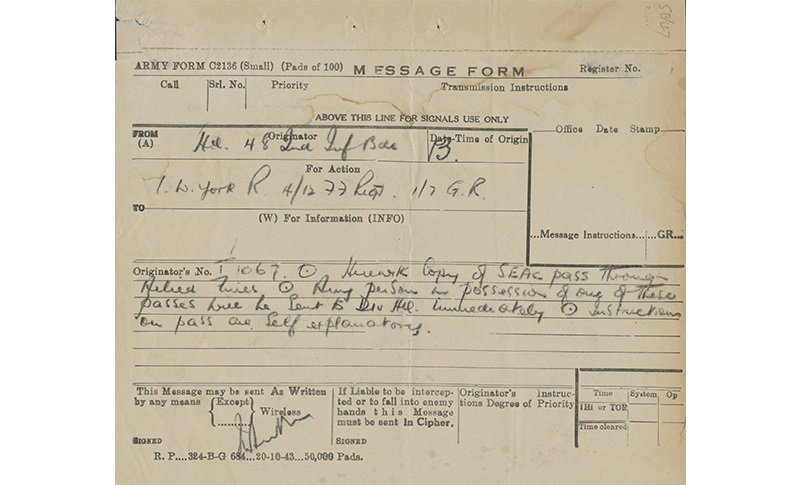 ARMY FORM C2136 (Small) (Pads of 100) MESSAGE FORM Register No.
Call Srl. No. Priority Transmission Instructions
ABOVE THIS LINE FOR SIGNALS USE ONLY
FROM (A) Originator Date-Time of Origin Office Date Stamp
HQ. 48 Ind Inf Bde 13.
For Action
1. W. York R. 4/12 FF Regt. 1/7 G.R.
TO
(W) For Information (INFO)
Message Instructions... GR...
Originator's No. I 1067. ⊙ Herewith Copy of SEAC pass through
Allied lines ⊙ Any person in possession of one of these
passes will be sent to Div HQ. immediately ⊙ instructions
on pass are self explanatory.
This Message may be sent As Written
by any means {Except} Wireless
If Liable to be intercep-
ted or to fall into enemy
hands this Message
must be sent in Cipher.
Originator's Instruc-
tions Degree of Priority
Time System Op
THI or TOR
Time cleared
SIGNED SIGNED
R. P....324-B-G 684...20-10-43...50,000 Pads.